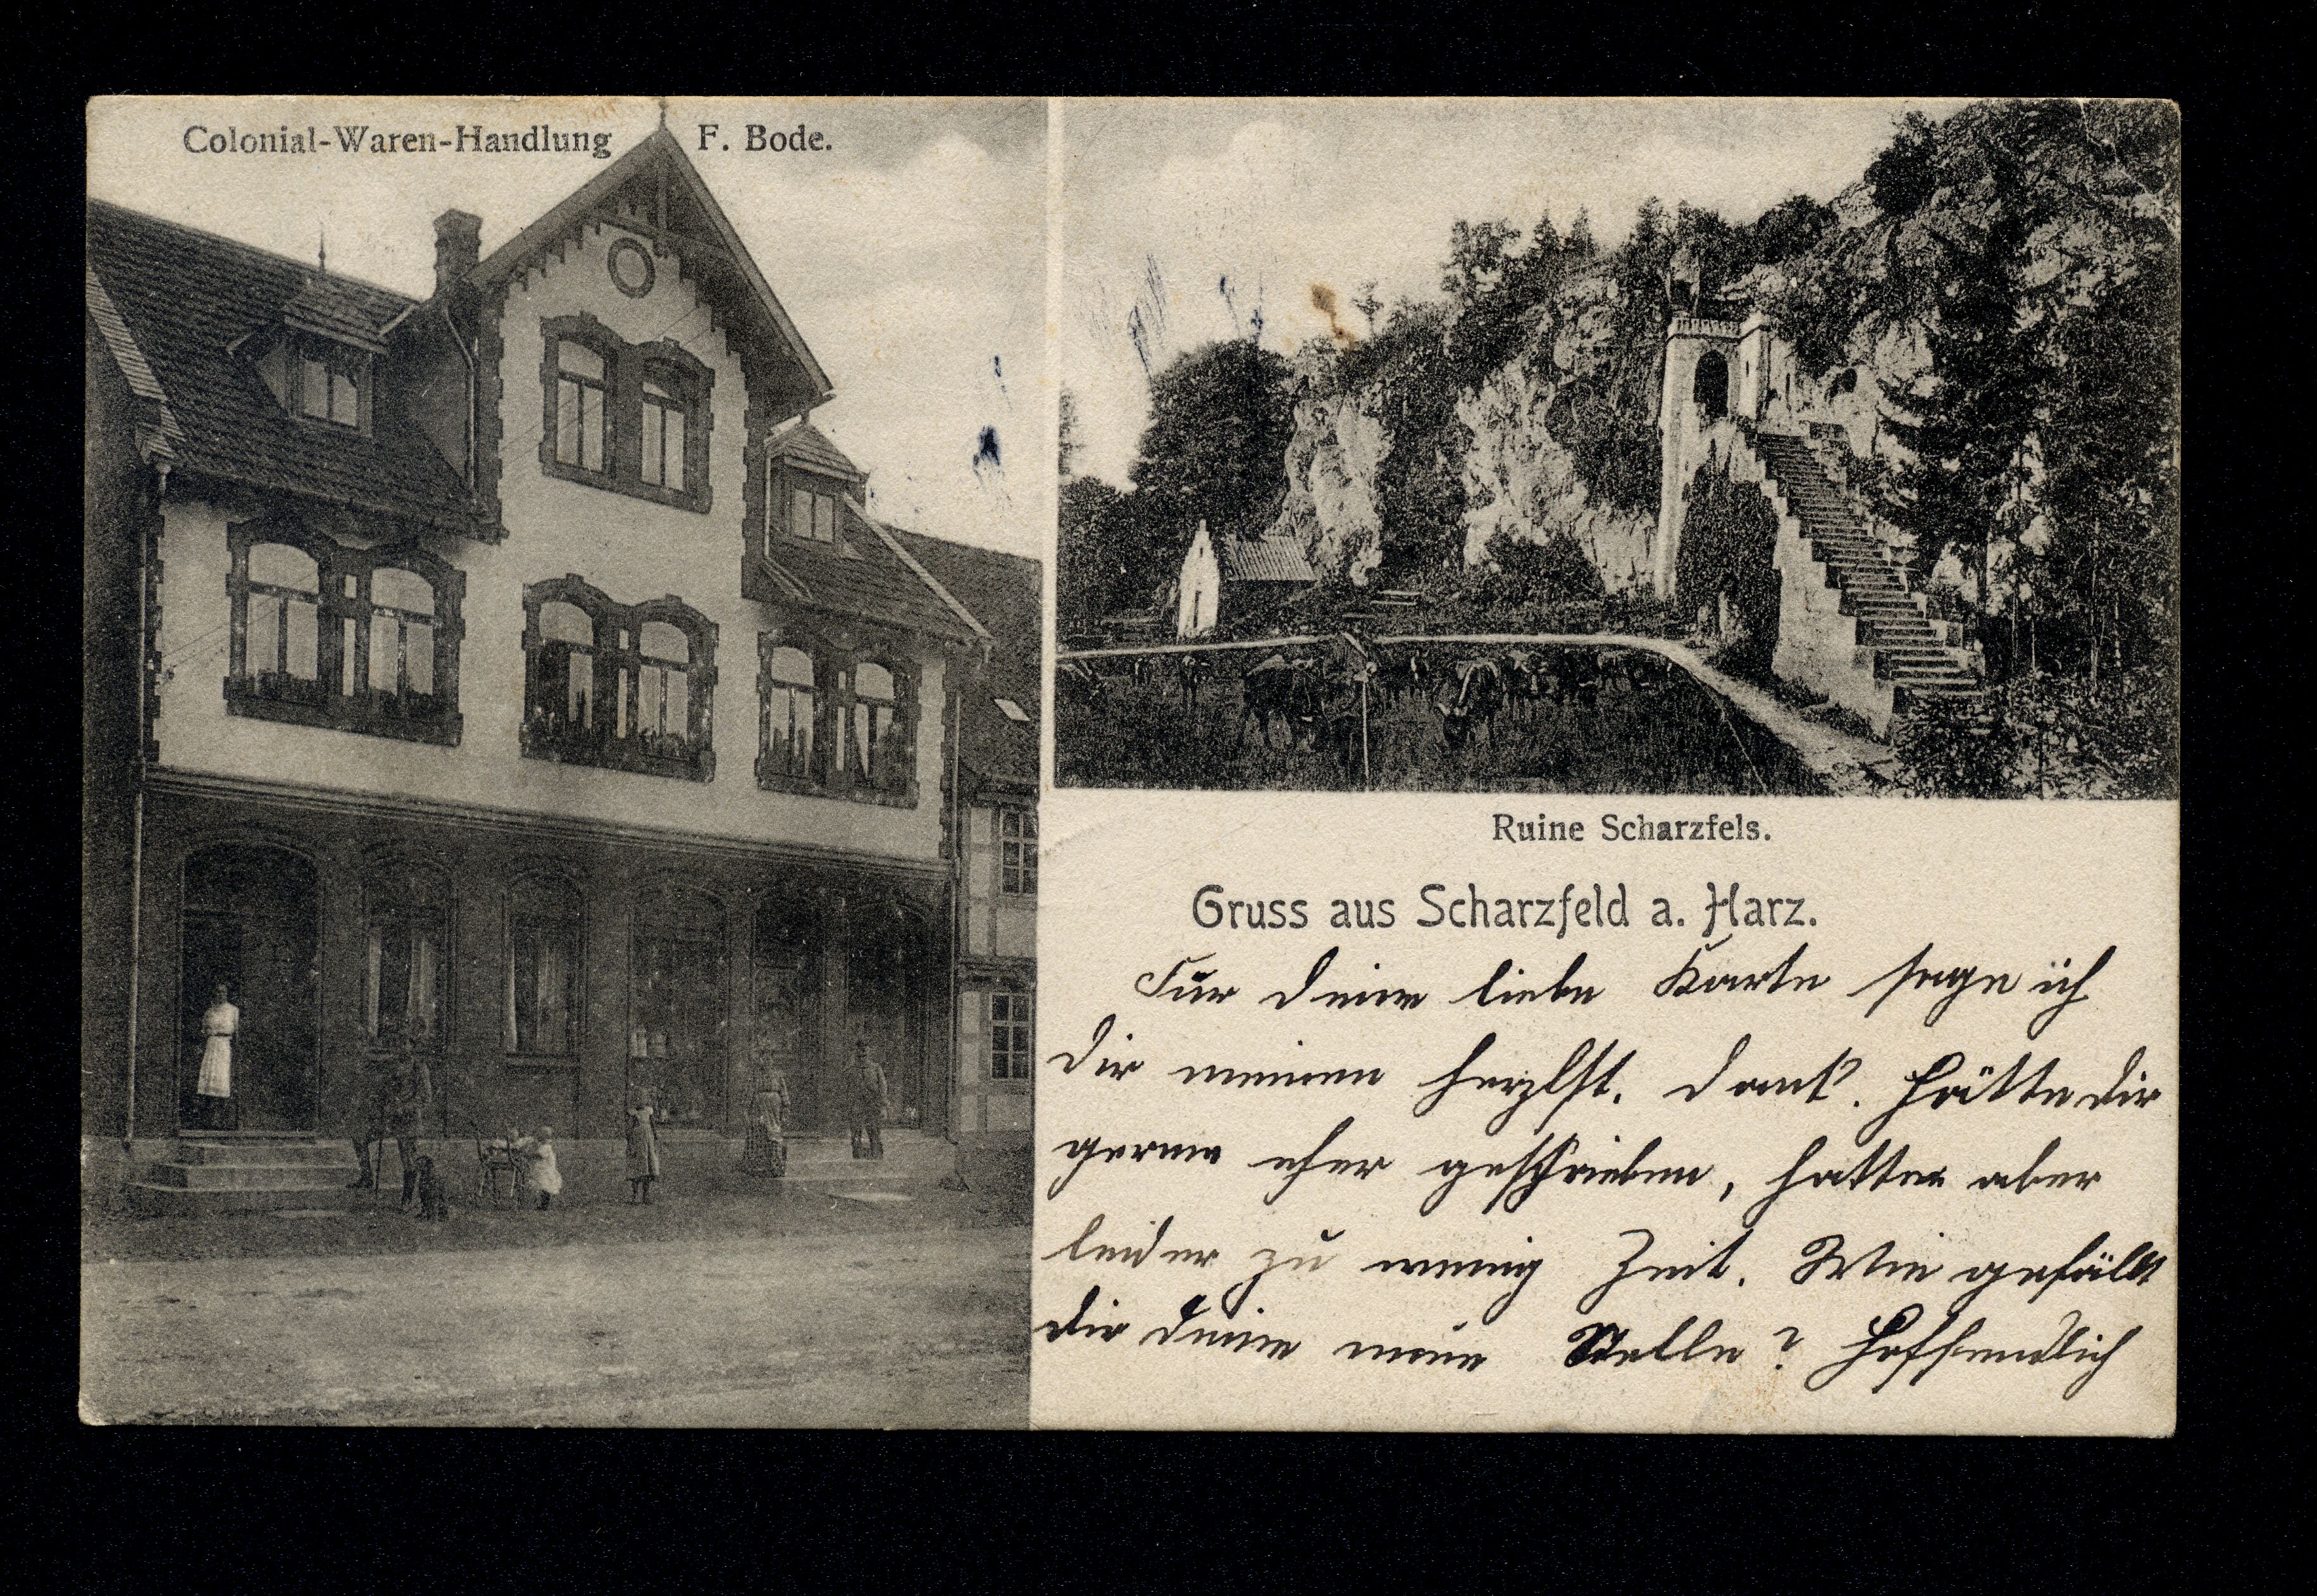 Colonial-Waren-Handlung F. Bode.
Ruine Scharzfels.
Gruss aus Scharzfeld a. Harz.
Für deine liebe Karte sage ich
dir meinen herzlst. Dank. Hätte dir
gerne eher geschrieben, hatte aber
leider zu wenig Zeit. Wie gefällt
dir deine neue Stelle? Hoffendlich